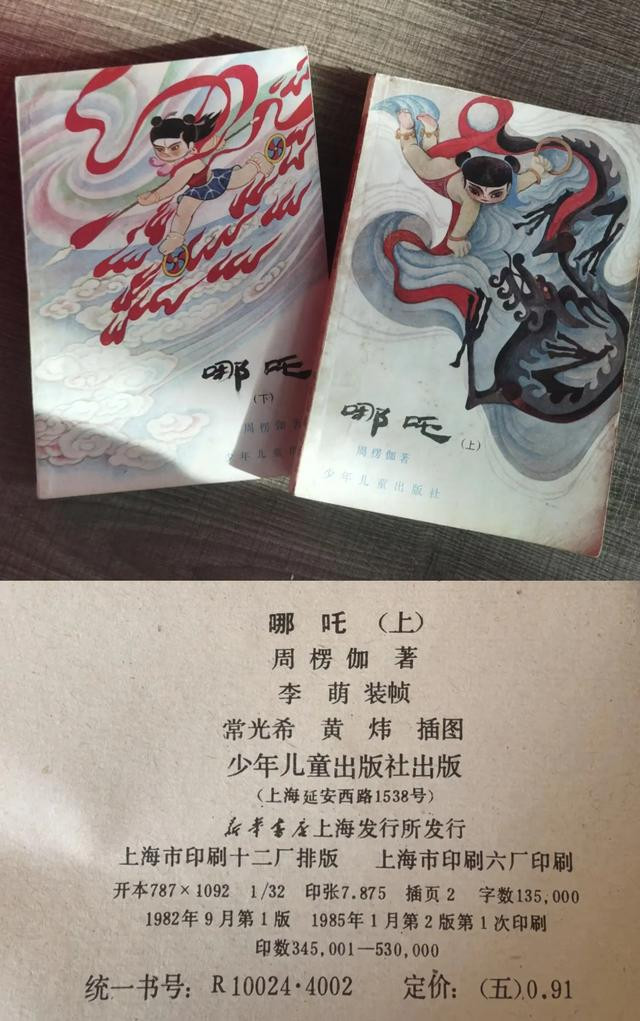 哪吒
(下)
周楞伽著
少年儿童出
哪吒
(上)
周楞伽著
少年儿童出版社
哪吒(上)
周楞伽 著
李萌装帧
常光希 黄炜 插图
少年儿童出版社出版
(上海延安西路1538号)
新华书店上海发行所发行
上海市印刷十二厂排版 上海市印刷六厂印刷
开本787×1092 1/32 印张7.875 插页2 字数135,000
1982年9月第1版 1985年1月第2版第1次印刷
印数345,001—530,000
统一书号:R10024·4002 定价:(五)0.91